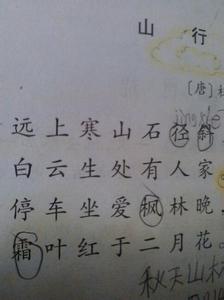 山行
[唐]
远上寒山石径斜
白云生处有人家
停车坐爱枫林晚,
霜叶红于二月花。
秋天山林